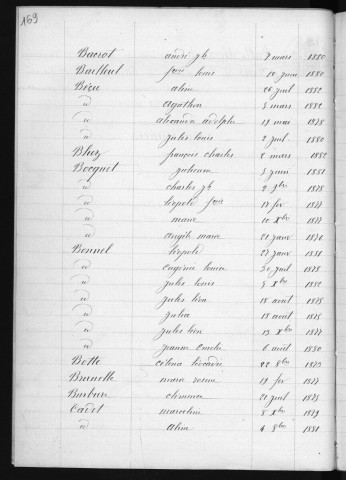 169
Bacrot andré jh 7 mars 1880
Bailleul fçois louis 10 juin 1880
Bécu aline 26 juil 1882
d agathon 3 mars 1882
d alexandre adolphe 19 mai 1878
d jules louis 2 juil 1880
Bhez françois charles 2 mars 1882
Bocquet julienne 3 juin 1881
d charles jh 2 9bre 1878
d léopold fçois 18 fév 1877
d marie 10 Xbre 1877
d angèle marie 21 janv 1874
Bonnel léopold 27 janv 1881
d eugénie louise 30 juil 1878
d jules louis 5 Xbre 1882
d jules léon 18 août 1875
d julia 18 août 1875
d jules léon 13 Xbre 1877
d jeanne émélie 6 août 1880
Botte célina léocadie 22 8bre 1879
Brunelle marie rosine 19 fév 1877
Burbure clémence 21 juil 1875
Cadet marceline 8 Xbre 1879
d aline 4 8bre 1881